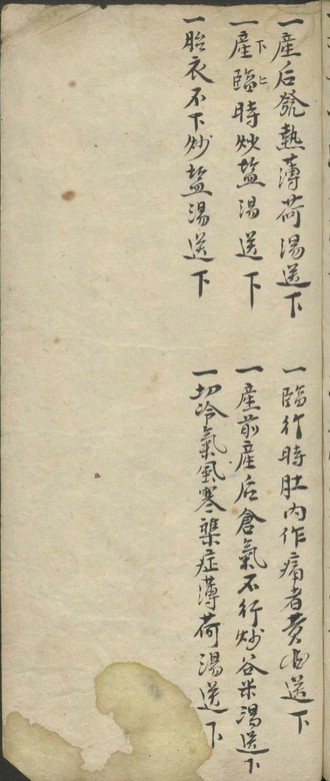 一產后發熱薄荷湯送下
一臨行時肚內作痛者黃酒送下
一產臨時炒盐湯送下
一產前產后倉氣不行炒谷米湯送下
一胎衣不下炒盐湯送下
一切冷氣風寒雜症薄荷湯送下